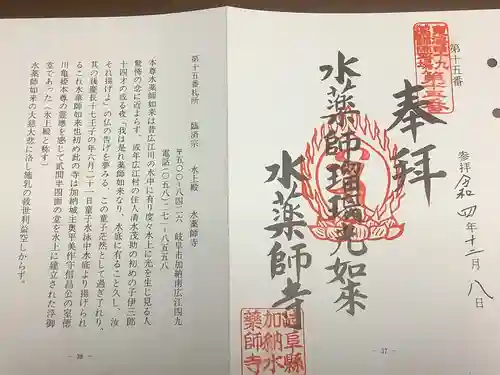 第十五番
奉拝
参拝 令和四年十二月八日
水薬師瑠璃光如来
水薬師寺
第十五番
岐阜縣
加納水
薬師寺
- 37 -
第十五番札所　臨済宗　水上殿　水薬師寺
〒五〇〇-八四二六　岐阜市加納南広江四九
電話〇五八(二七一)八五五八
本尊水薬師如来は昔広江川の水中に有り度々水上に光を生じ見る人
驚怖の念に迫よらず。或年広江村の住人清水茂助の初めの子伊三郎
十四才の或る夜「我は是れ薬師如来なり、水底に有ること久し、汝
それ揚げよ」の仏の告げを夢みる。この童子茫然として過ぎ了れり、
其の後慶長十七壬子の年六月二十一日童子水泳中水底より揚げられ
るこれ水薬師如来也初め此の寺は加納城主奥平美作守信昌公の室徳
川亀姫本尊の霊徳を感じて貳間半四面の堂を水上に建立された浮御
堂であった(水上殿と称す)
水薬師如来の大慈大悲に浴し施乳の救世利益空しからず。
- 38 -